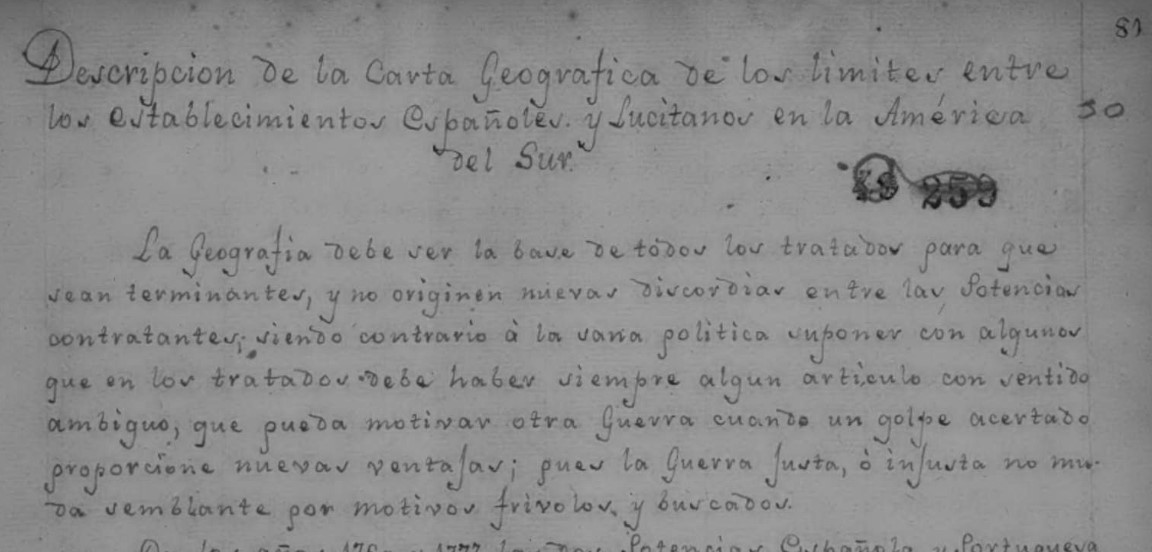 81
Descripcion de la Carta Geografica de los limites entre
los establecimientos Españoles y Lucitanos en la América
30
del Sur.
259
La Geografia debe ser la base de tódos los tratados para que
sean terminantes, y no originen nuevas discordias entre las Potencias
contratantes; siendo contrario à la sana politica suponer con algunos
que en los tratados debe haber siempre algun articulo con sentido
ambiguo, que pueda motivar otra Guerra cuando un golpe acertado
proporcione nuevas ventajas; pues la Guerra justa, ò injusta no mu-
da semblante por motivos frivolos, y buscados.
Potencias Española y Portuguesa